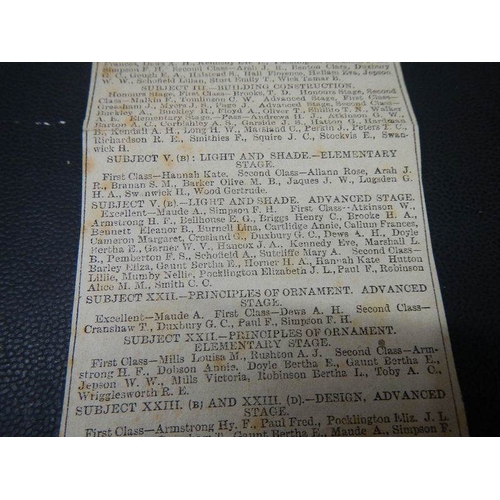 Simpson F. H. Second Class—Arah J. R., Benton Clara, Duxbury
G. C., Gough E. A., Halstead S., Hall Florence, Hellam Eva, Jepson
W. W., Schofield Lilian, Sturt Emily T., Wick Tamar B.
SUBJECT III.—BUILDING CONSTRUCTION.
Honours Stage, First Class—Brooks, T. D. Honours Stage, Second
Class—Malkin F., Tomlinson C. W. Advanced Stage, First Class—
Gresham J., Myers J. S., Page J. Advanced Stage, Second Class—
Buckley A., Hinchley H., Floyd A., Oliver T., Shuttle T. N., Walker
A. E. Elementary Stage.—Pass—Andrews H. J., Atkinson G. W.,
Barton A. Corfishley A. S., Garside J. S., Hatton G., Hardman
B., Kendall A. H., Long H. W., Marsland C., Perkin J., Peters T. C.,
Richardson R. E., Smithies F., Squire J. C., Stockvis E., Swan-
wick H.
SUBJECT V. (B): LIGHT AND SHADE.—ELEMENTARY
STAGE.
First Class—Hannah Kate. Second Class—Allann Rose, Arah J.
R., Branan S. M., Barker Olive M. B., Jaques J. W., Lugsden G.
H. A., Swanwick H., Wood Gertrude.
SUBJECT V. (B)—LIGHT AND SHADE. ADVANCED STAGE.
Excellent—Maude A., Simpson F. H. First Class—Atkinson W.,
Armstrong H. F., Bellhouse E. G., Briggs Henry C., Brooke H. A.,
Bennett Eleanor B., Burnell Lina, Cartlidge Annie, Callum Frances,
Cameron Margaret, Crosland G., Duxbury G. C., Dews A. H., Doyle
Bertha E., Garner W. V., Hancox J. A., Kennedy Eve, Marshall L.
B., Pemberton F. S., Schofield A., Sutcliffe Mary A. Second Class—
Barley Eliza, Gaunt Bertha E., Horner H. A., Hannah Kate Hutton
Lillie, Mumby Nellie, Pocklington Elizabeth J. L., Paul F., Robinson
Alice M. M., Smith C. C.
SUBJECT XXII.—PRINCIPLES OF ORNAMENT. ADVANCED
STAGE.
Excellent—Maude A. First Class—Dews A. H. Second Class—
Cranshaw T., Duxbury G. C., Paul F., Simpson F. H.
SUBJECT XXII.—PRINCIPLES OF ORNAMENT.
ELEMENTARY STAGE.
First Class—Mills Louisa M., Rushton A. J. Second Class—Arm-
strong H. F., Dobson Annie, Doyle Bertha E., Gaunt Bertha E.,
Jepson W. W., Mills Victoria, Robinson Bertha L., Toby A. C.,
Wrigglesworth R. E.
SUBJECT XXIII. (B) AND XXIII. (D).—DESIGN, ADVANCED
STAGE.
First Class—Armstrong Hy. F., Paul Fred., Pocklington Eliz. J. L.
T., Gaunt Bertha E., Maude A., Simpson F.